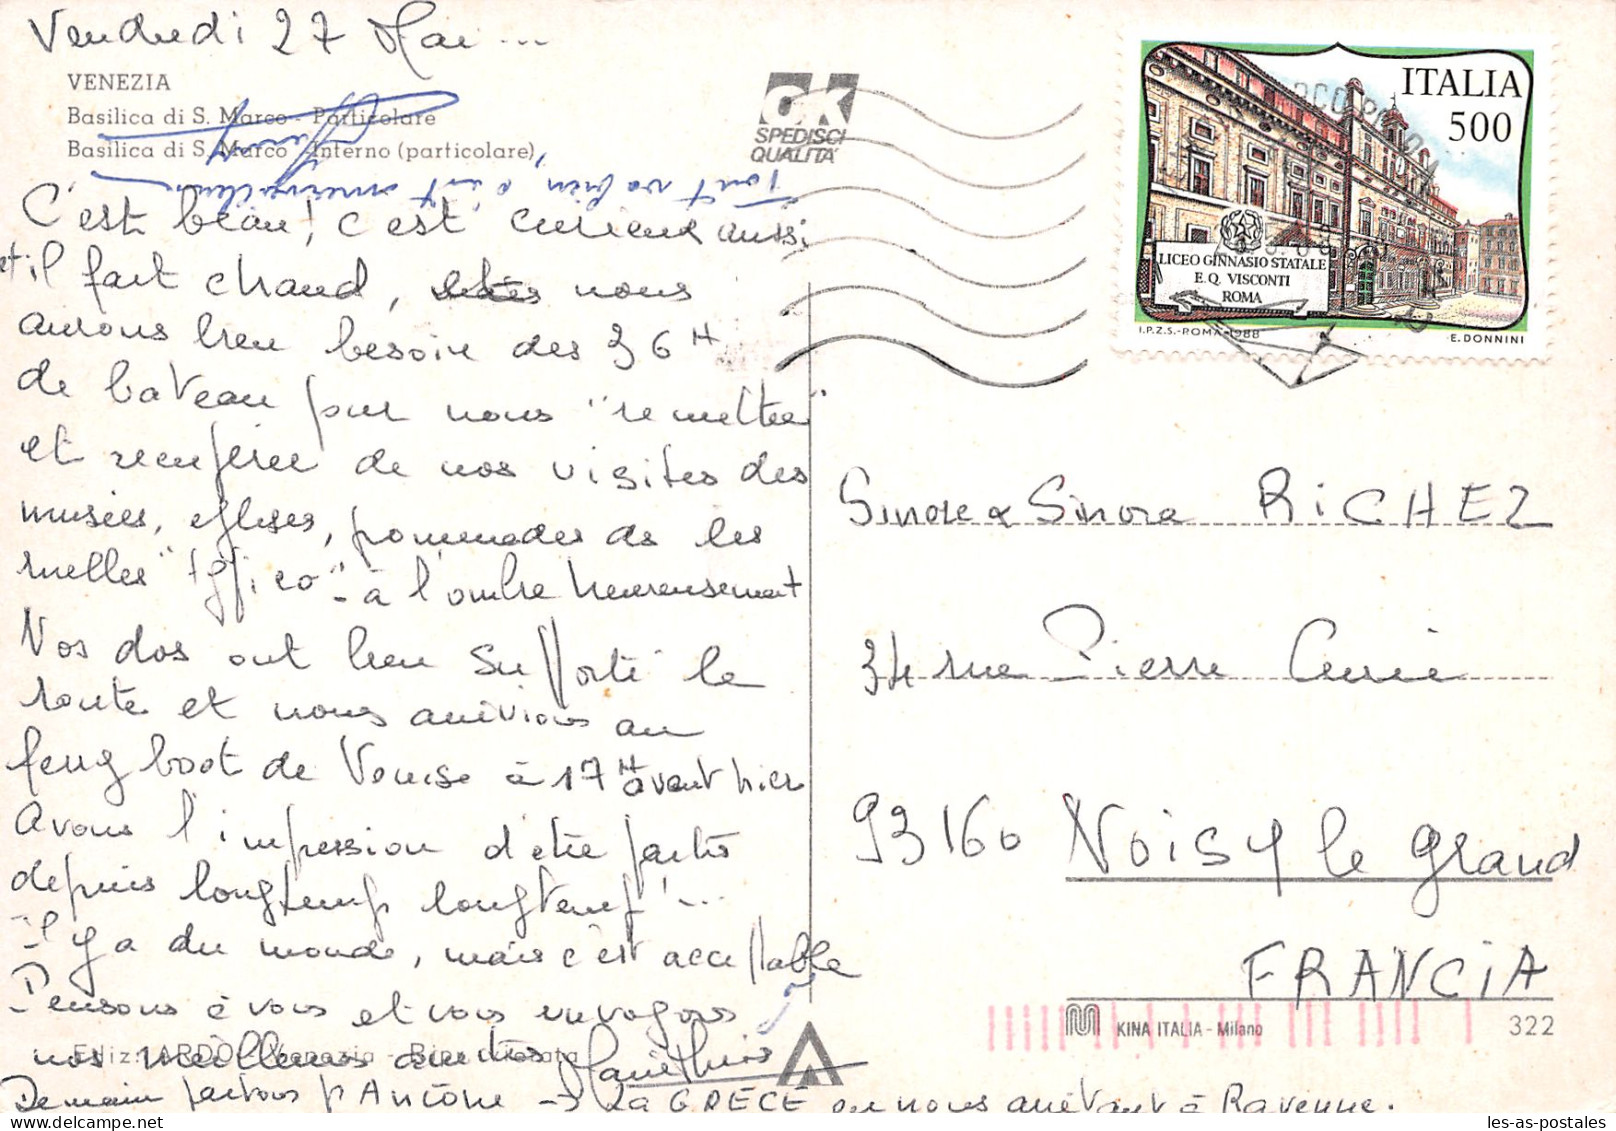 Vendredi 27 Mai ...
VENEZIA
Basilica di S. Marco - Particolare
Basilica di S. Marco - Interno (particolare)
Tout va bien, c'est merveilleux
C'est beau! c'est curieux aussi
et il fait chaud, nous
aurons bien besoin des 36H
de bateau pour nous "remettre"
et récupérer de nos visites des
musées, églises, promenades ds les
ruelles - à l'ombre heureusement
Nos dos ont bien supporté la
route et nous arrivions au
de Venise à 17H avant hier
Avons l'impression d'être partis
depuis longtemps longtemps! ...
Il y a du monde, mais c'est acceptable
Pensons à vous et vous envoyons
nos meilleures amitiés
Ediz. ARDO - Venezia
Demain partons p. Ancône → La GRÈCE en nous arrêtant à Ravenne.
OK
SPEDISCI
QUALITÀ
ITALIA
500
LICEO GINNASIO STATALE
E.Q. VISCONTI
ROMA
I.P.Z.S.-ROMA-1988
E. DONNINI
Sinore & Sinora RICHEZ
34 rue Pierre Curie
93160 NOISY le Grand
FRANCIA
KINA ITALIA - Milano
322
les-as-postales